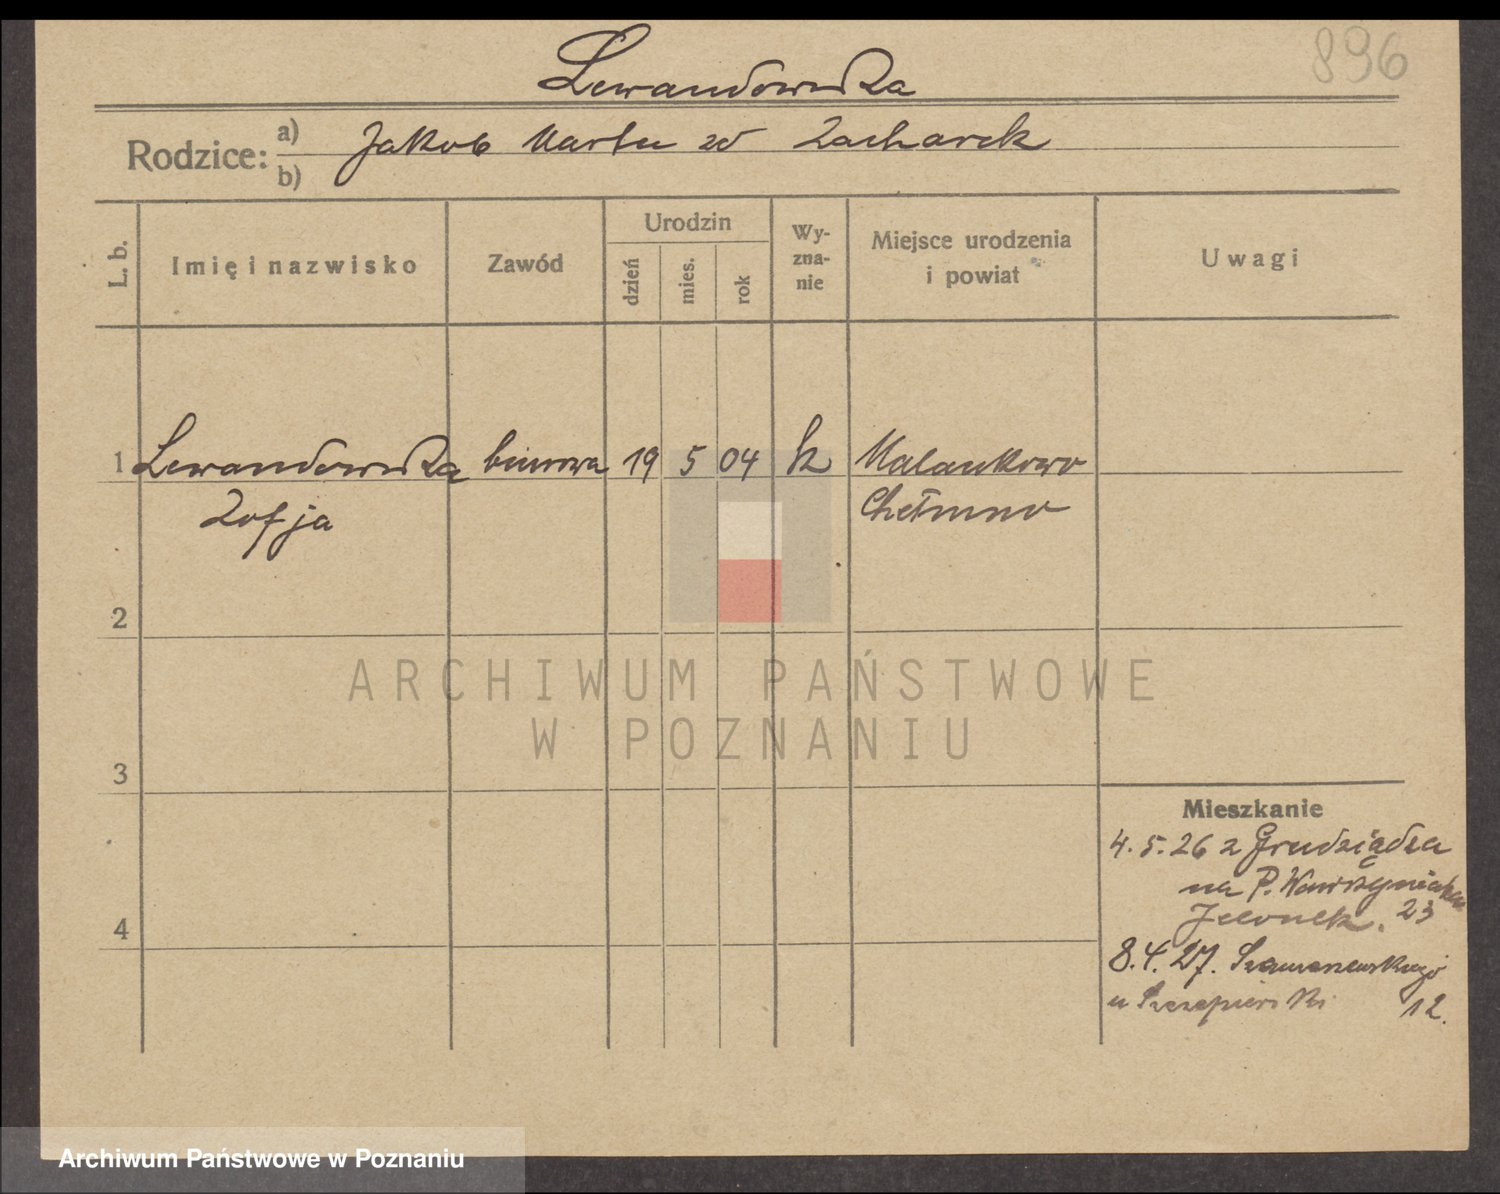 896
Lewandowska
Rodzice: a) Jakob Marta zd Zacharek
b)
L. b.
Imię i nazwisko
Zawód
Urodzin
dzień
mies.
rok
Wy-
zna-
nie
Miejsce urodzenia
i powiat
Uwagi
1 Lewandowska biurowa 19 5 04 k Malankowo
Zofja Chełmno
2
3
4
Mieszkanie
4.5.26 z Grudziądza
na P. Wawrzyniaka
23
8.4.27. Szamarzewskiego
u 12.
ARCHIWUM PAŃSTWOWE
W POZNANIU
Archiwum Państwowe w Poznaniu